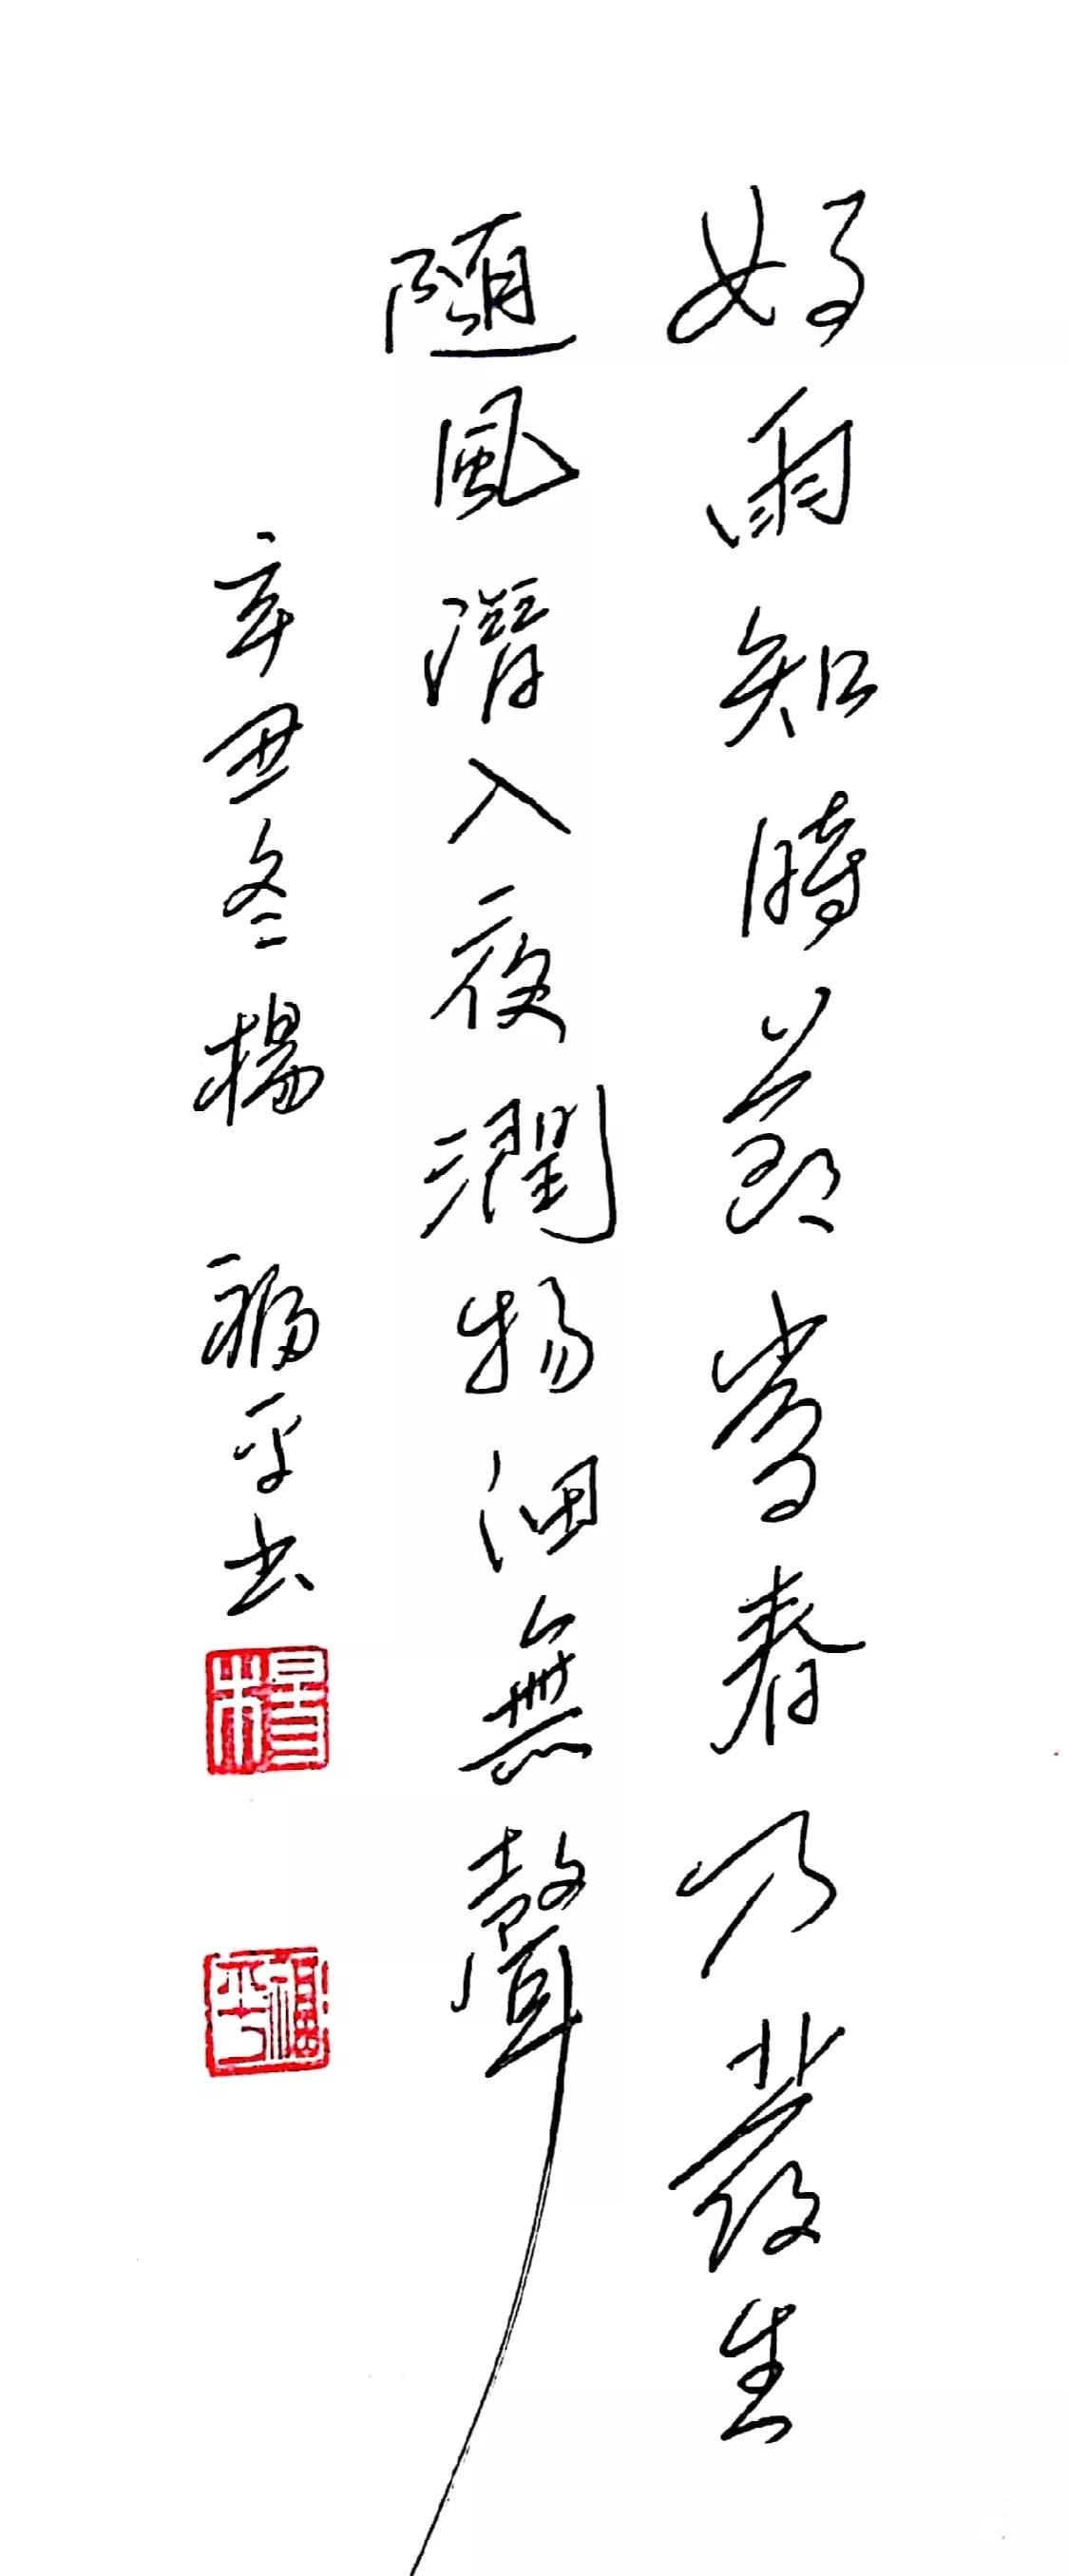 好雨知時節當春乃發生
隨風潛入夜潤物細無聲
辛丑冬楊福平書
楊
福平